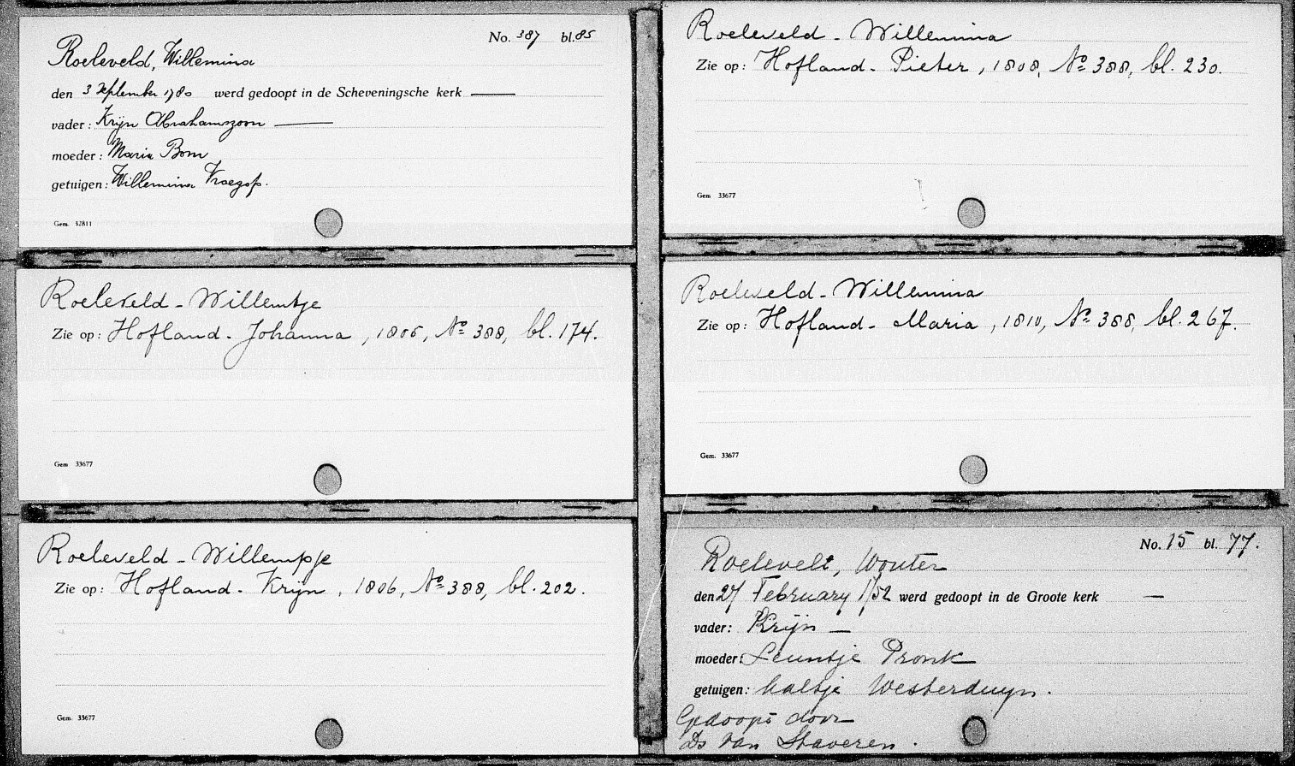 No. 387 bl. 85
Roeleveld, Willemina
den 3 September 1780 werd gedoopt in de Scheveningsche kerk
vader: Krijn Abrahamszoon
moeder: Maria Bom
getuigen: Willemina
Gem. 52811
Roeleveld - Willemtje
Zie op: Hofland - Johanna, 1805, No 388, bl. 174.
Gem 33677
Roeleveld - Willempje
Zie op: Hofland - Krijn, 1806, No 388, bl. 202.
Gem. 33677
Roeleveld - Willemina
Zie op: Hofland - Pieter, 1808, No 388, bl. 230.
Gem. 33677
Roeleveld - Willemina
Zie op: Hofland - Maria, 1810, No 388, bl. 267.
Gem. 33677
No. 15 bl. 77.
Roelevelt, Wouter
den 27 February 1752 werd gedoopt in de Groote kerk —
vader: Krijn —
moeder: Leuntje Pronk
getuigen: Westerduyn.
Gedoopt door
Ds van Staveren.